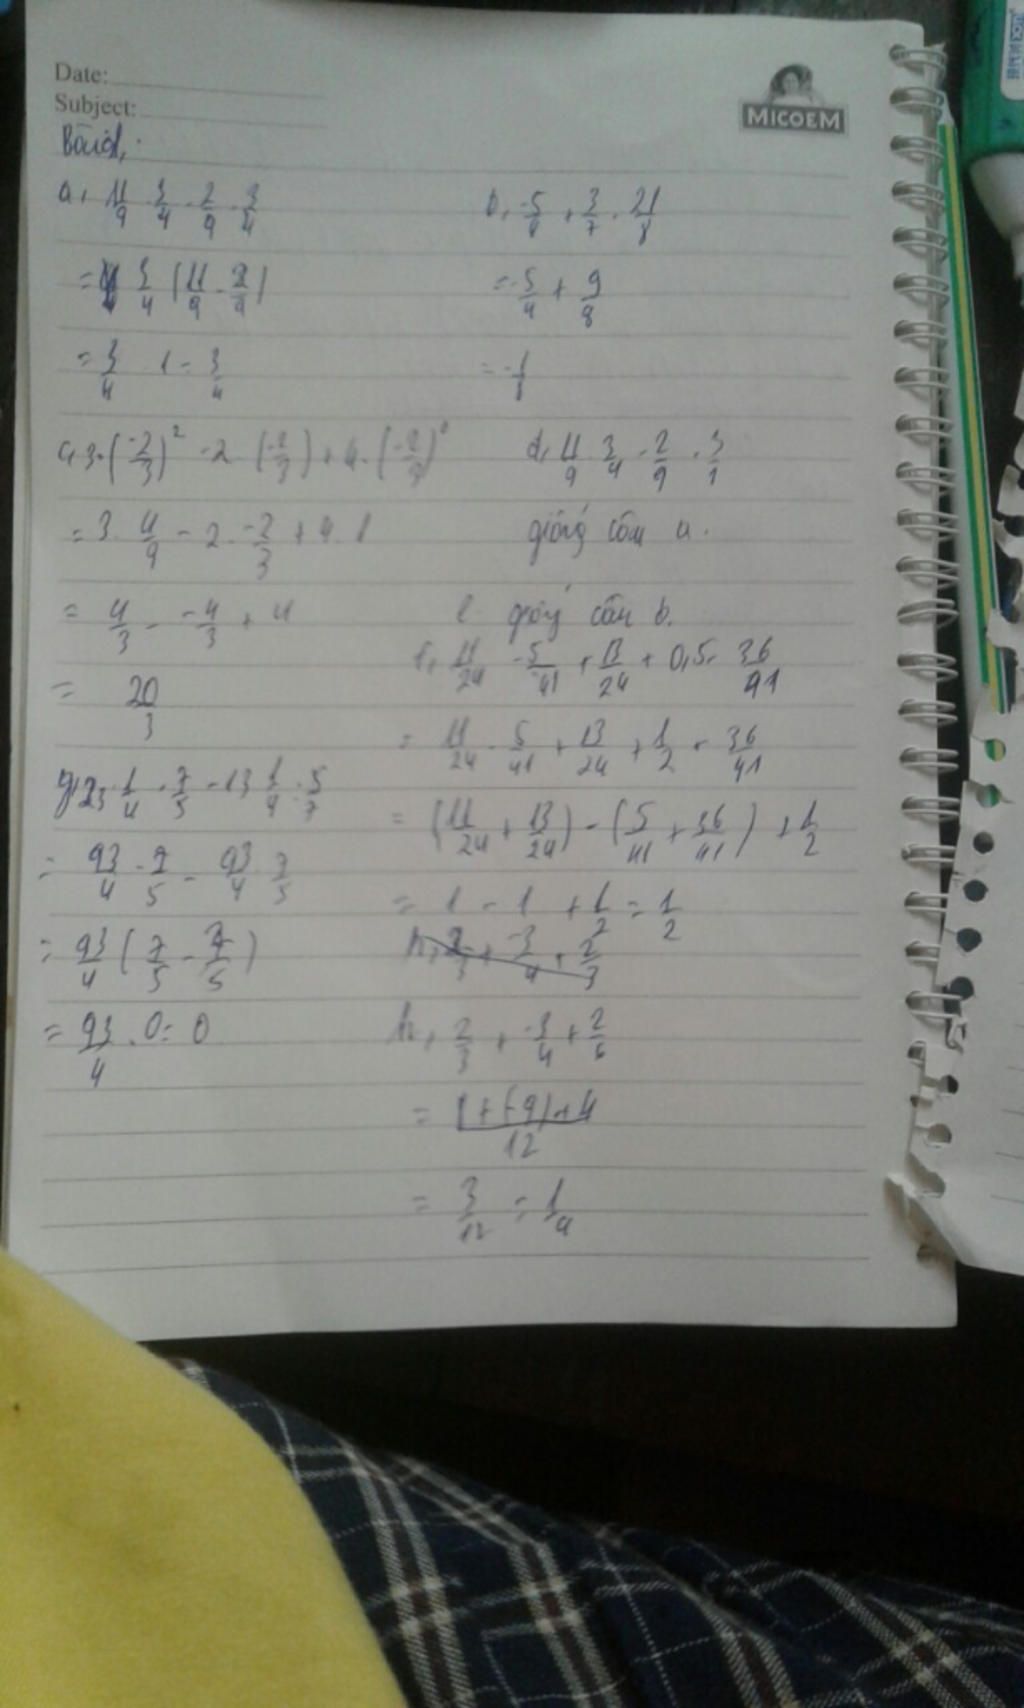 Date:
Subject:
MICOEM
a, 11/9 . 3/4 - 2/9 . 3/4
= 3/4 (11/9 - 2/9)
= 3/4 . 1 = 3/4
b, -5/4 + 3/7 . 21/8
= -5/4 + 9/8
= -1/8
c, 3. (-2/3)² - 2. (-2/3) + 4. (-2/3)⁰
= 3. 4/9 - 2. -2/3 + 4. 1
= 4/3 - -4/3 + 4
= 20/3
d, 11/9 . 3/4 - 2/9 . 3/
giống câu a.
e giống câu b.
f, 11/24 - 5/41 + 13/24 + 0,5 - 36/41
= 11/24 - 5/41 + 13/24 + 1/2 - 36/41
= (11/24 + 13/24) - (5/41 + 36/41) + 1/2
= 1 - 1 + 1/2 = 1/2
g, 23 1/4 . 7/5 - 13 1/4 : 5/7
= 93/4 . 7/5 - 93/4 . 7/5
= 93/4 (7/5 - 7/5)
= 93/4 . 0 = 0
h, 2/3 + -3/4 + 2/6
= + (-9) + 4 / 12
= 3/12 = 1/4